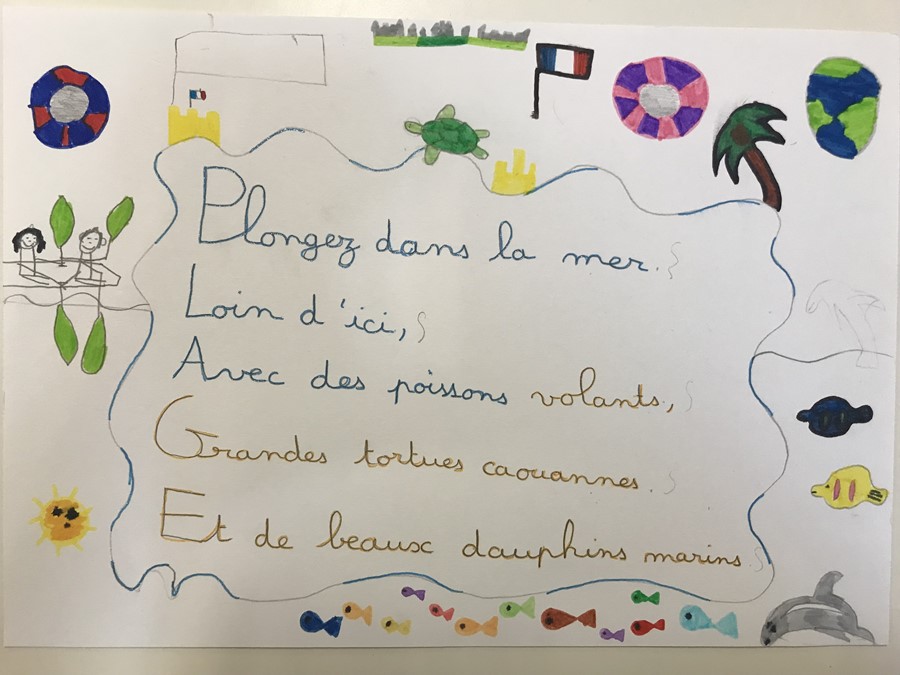 Plongez dans la mer.
Loin d'ici,
Avec des poissons volants,
Grandes tortues caouannes.
Et de beaux dauphins marins